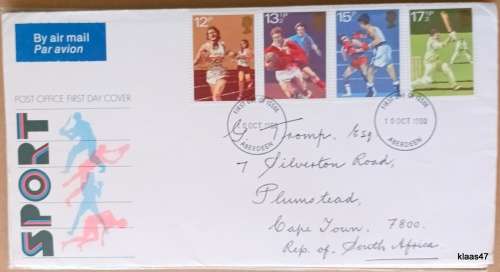 By air mail
Par avion
12P
13½P
15P
17½P
POST OFFICE FIRST DAY COVER
SPORT
FIRST DAY OF ISSUE
10 OCT 1980
ABERDEEN
FIRST DAY OF ISSUE
10 OCT 1980
ABERDEEN
G. Tromp. Esq
7 Silverton Road,
Plumstead,
Cape Town. 7800.
Rep. of South Africa.
klaas47